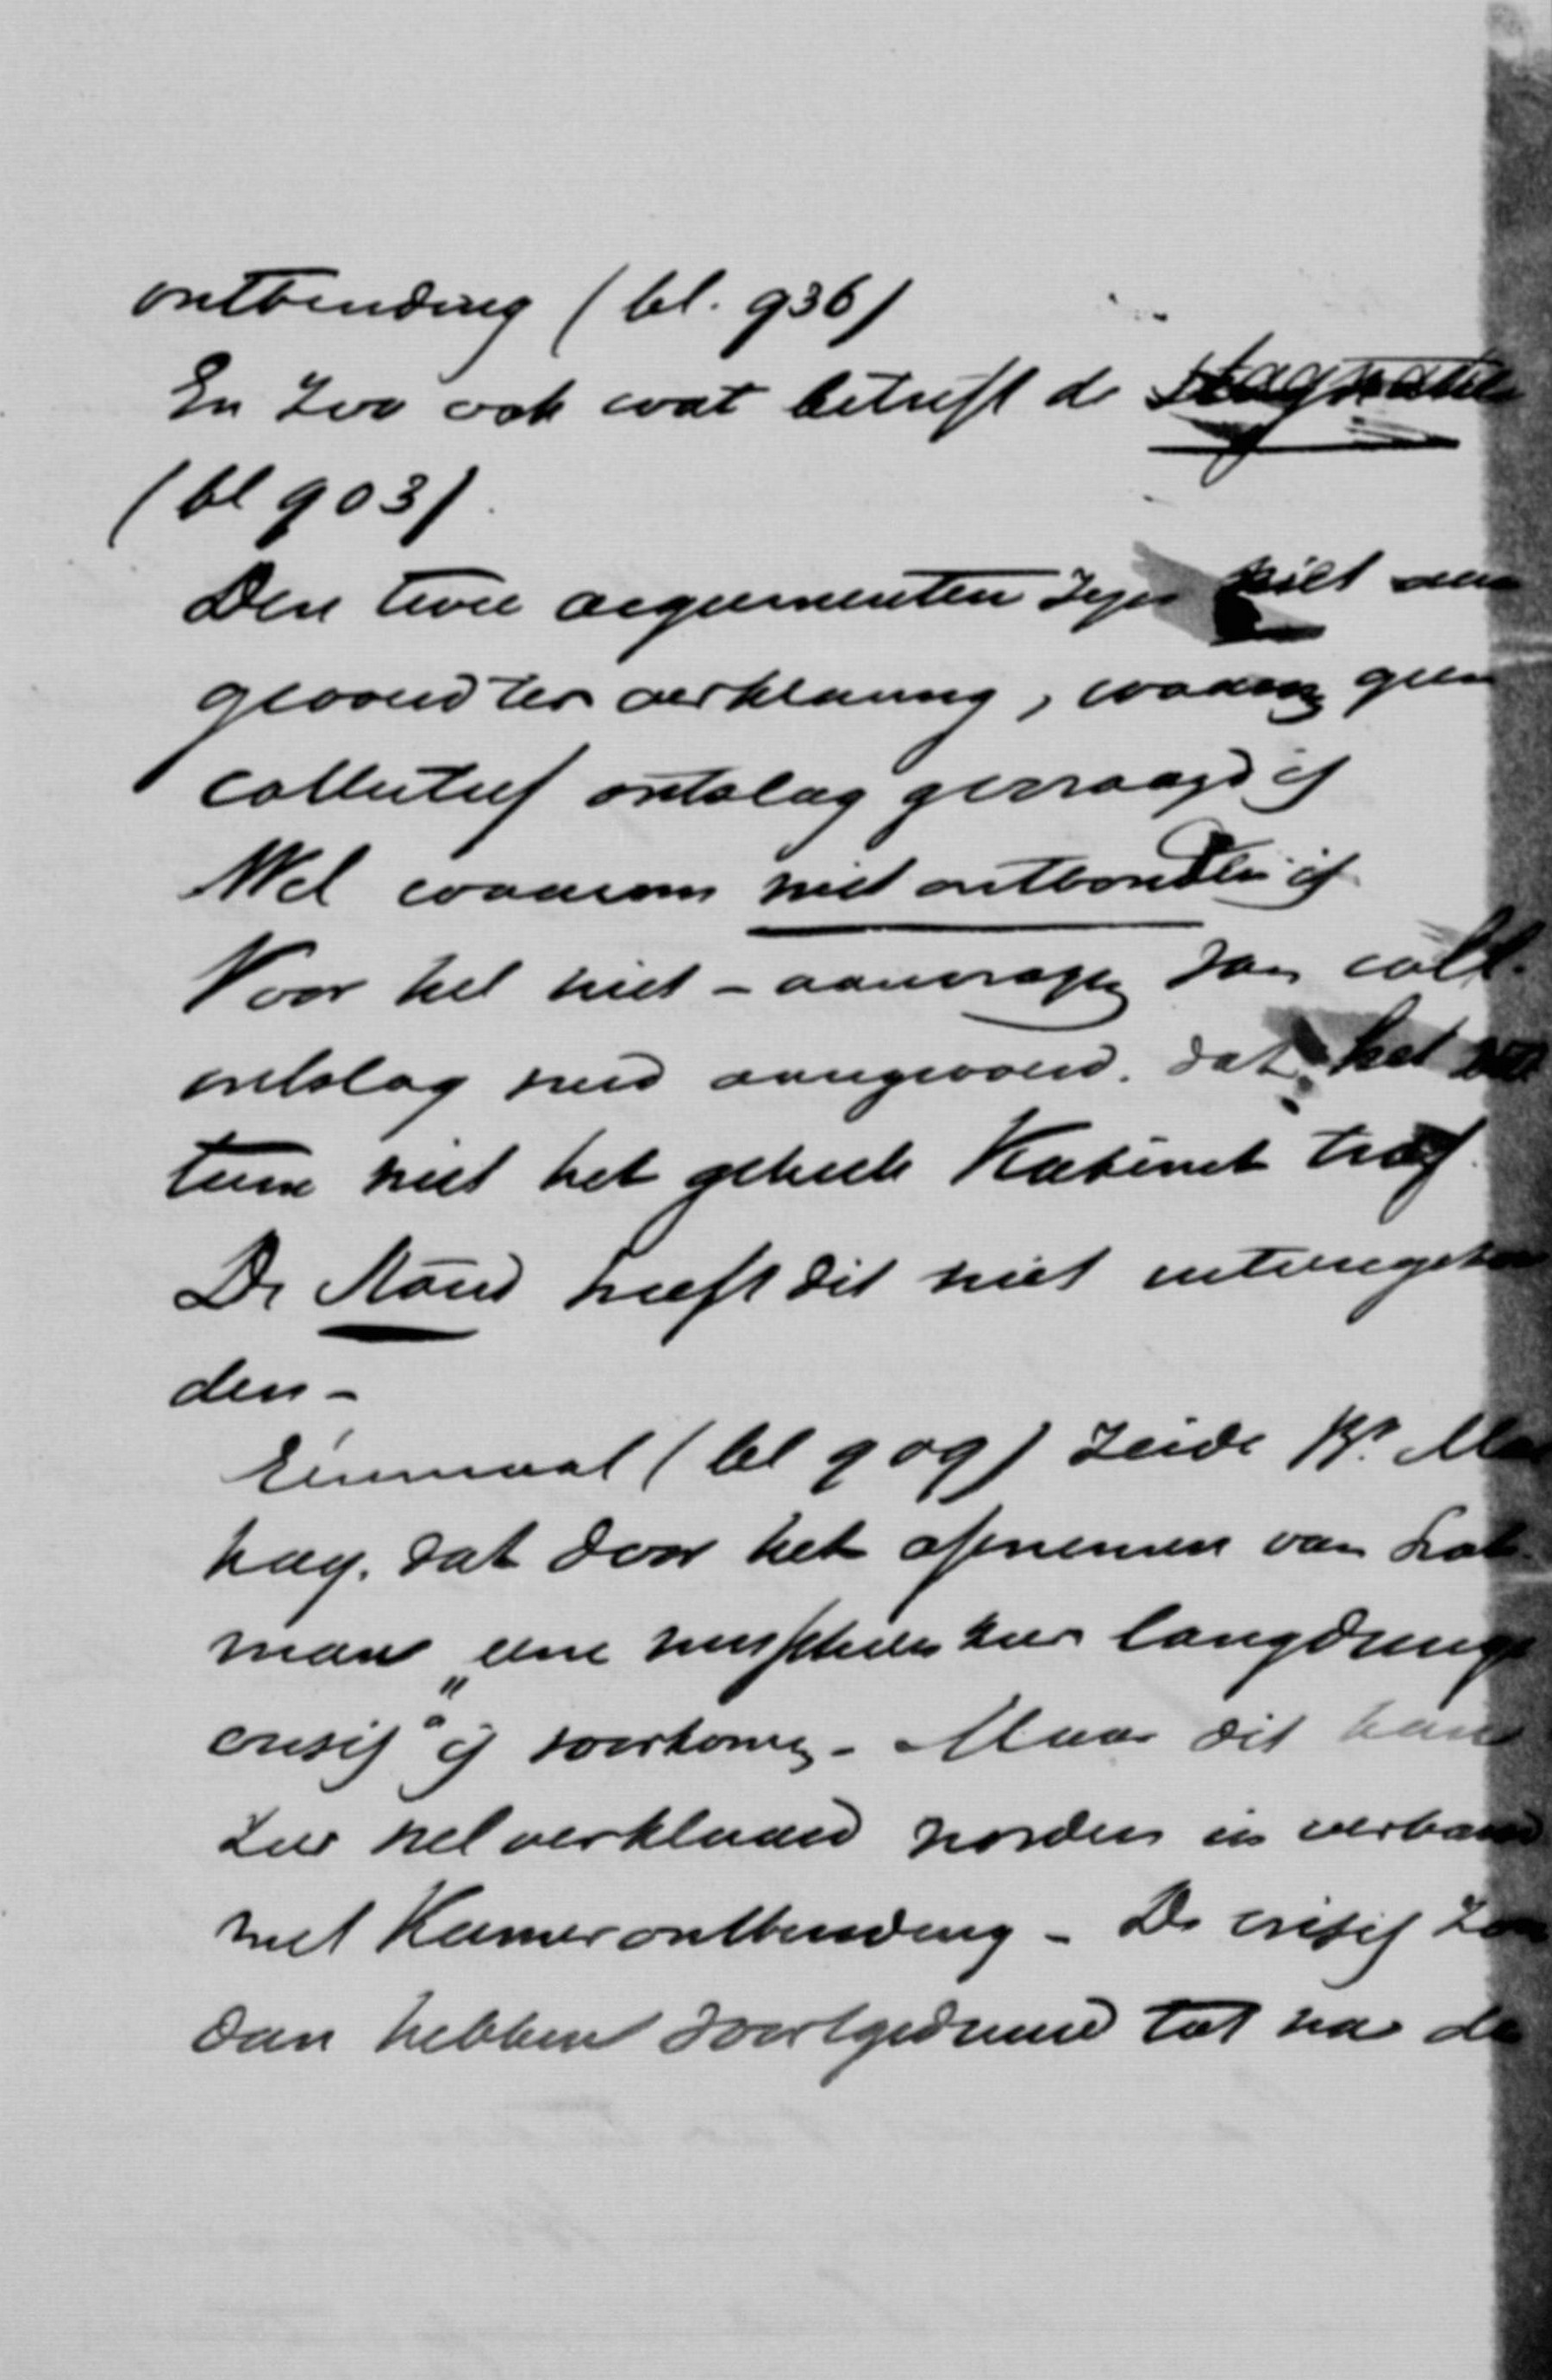 ontbinding (bl. 936)
En zoo ook wat betreft de stagnatie
(bl 903).
Den twee argumenten zijn niet aan
gevoerd ter verklaring, waarom geen
collectief ontslag gevraagd is
Wel waarom niet ontbonden is
Voor het niet-aanvragen van coll.
ontslag werd aangevoerd. dat het vo
tum niet het geheele Kabinet trof.
De Stand heeft dit niet
den-
Eenmaal (bl 909) zeide Kr. Ma
kay. dat door het opnemen van Loh
man "eene misschien zeer langdurige
crisis" is voorkomen. Maar dit kan
zeer wel verklaard worden in verband
met Kamerontbinding - De crisis zou
dan hebben voortgeduurd tot na de